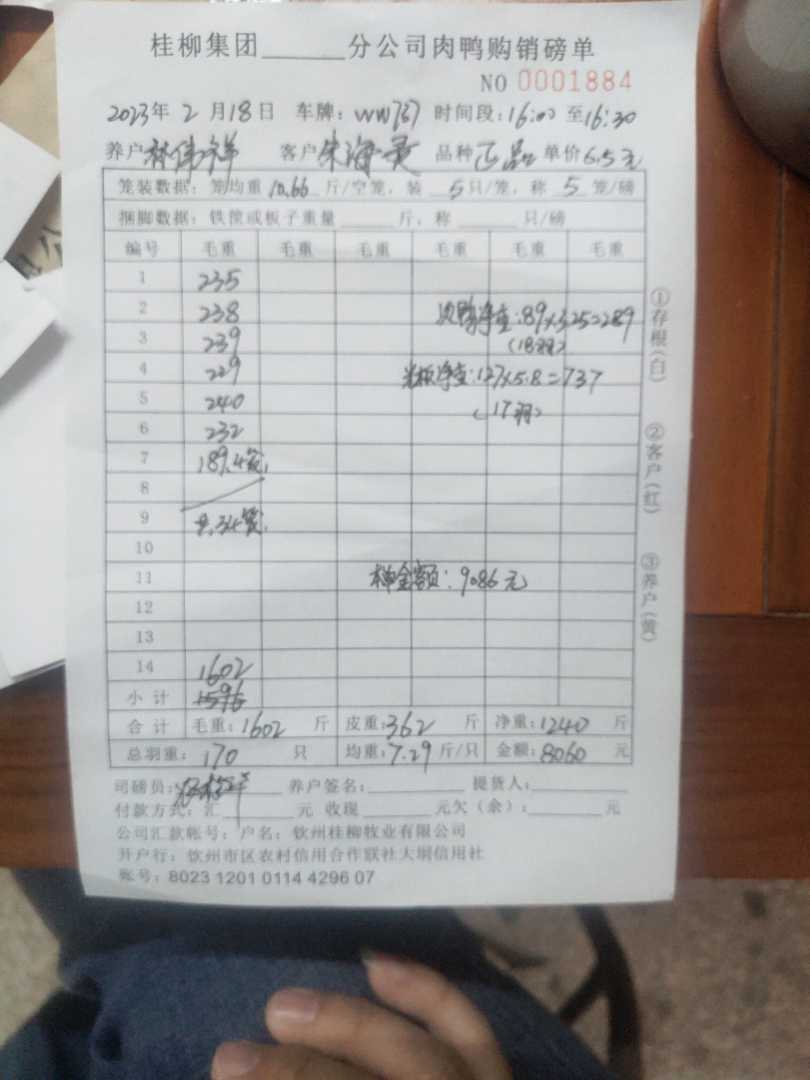 桂柳集团______分公司肉鸭购销磅单
NO 0001884
2023年 2 月 18 日 车牌：WW767 时间段：16:00 至 16:30
养户 林伟祥 客户 朱海 品种 正品 单价 6.5 元
笼装数据：笼均重 10.66 斤/空笼，装 5 只/笼，称 5 笼/磅
捆脚数据：铁筐或板子重量______斤，称______只/磅
编号 毛重 毛重 毛重 毛重 毛重 毛重
1 235
2 238 次鸭净重：89×3.25=289
3 239 (18羽)
4 229 净重：127×5.8=737
5 240 (17羽)
6 232
7 189.4笼
8
9 共34笼
10
11 金额：9086元
12
13
14 1602
小计 1596
合计 毛重：1602 斤 皮重：362 斤 净重：1240 斤
总羽重：170 只 均重：7.29 斤/只 金额：8060 元
司磅员： 养户签名：______ 提货人：______
付款方式：汇______元 收现______元欠（余）：______元
公司汇款帐号：户名：钦州桂柳牧业有限公司
开户行：钦州市区农村信用合作联社大垌信用社
账号：8023 1201 0114 4296 07
①存根(白)
②客户(红)
③养户(黄)